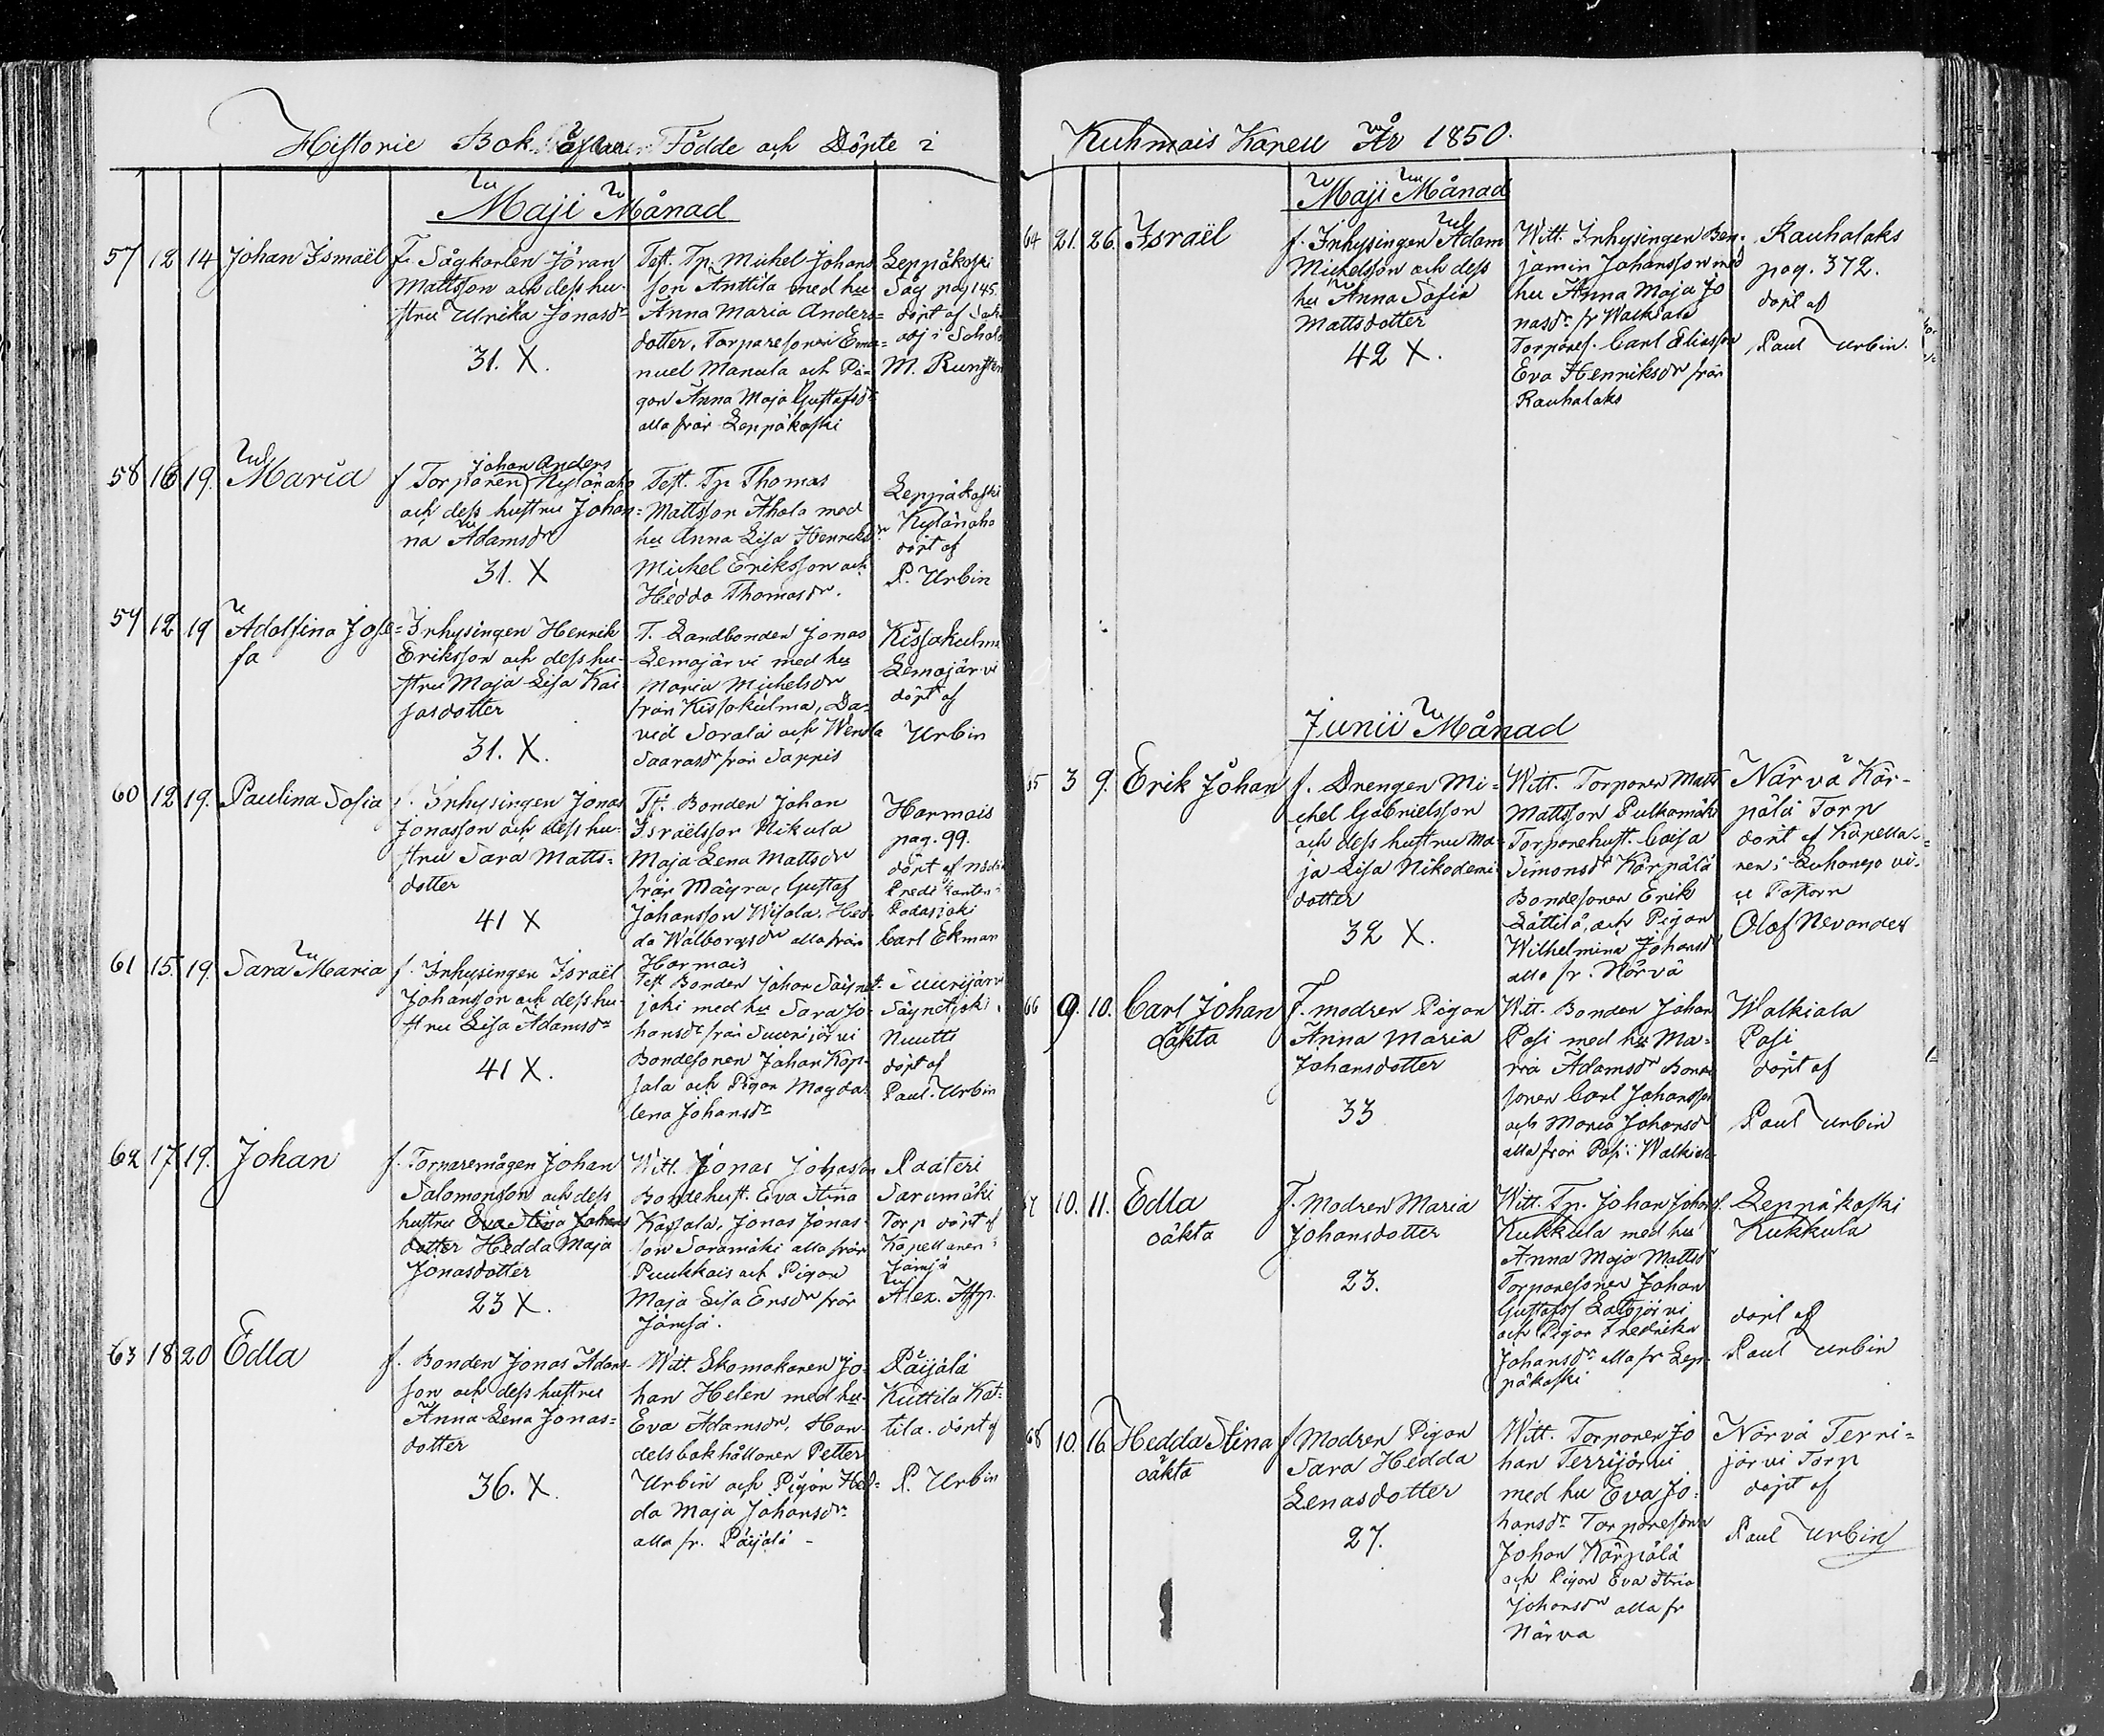 Historie Bok Födde och Döpte i
Maji Månad
57 12 14 Johan Ismaël
F. Sågkarlen Jöran
Mattsson och dess hu-
stru Ulrika Jonasdr
31. X.
Test. Tp. Michel Johans
son Anttila med hu
Anna Maria Anders=
dotter, Torparesonen Ema=
nuel Manula och Pi=
gan Anna Maja Gustafsdr
alla från Leppäkoski
Leppäkoski
Såg pag 145.
döpt af
M. Rungsten
58 16 19. Maria
Johan Anders
f Torparen Kylänaho
och dess hustru Johan=
na Adamsdr
31. X
Test. Tp Thomas
Mattsson Ahola med
hu Anna Lisa Henriksdr
Michel Eriksson och
Hedda Thomasdr.
Leppäkoski
Kylänaho
döpt af
P. Urbin
59 12 19 Adolfina Jose=
fa
Inhysingen Henrik
Eriksson och dess hu-
stru Maja Lisa Kai
sasdotter
31. X.
T. Landbonden Jonas
Lemojärvi med hu
Maria Michelsdr
från Kissakulma, Da-
vid Sorala och Wenla
Saarasdr från Sappis
Kissakulma
Lemojärvi
döpt af
Urbin
60 12 19. Paulina Sofia
f. Inhysingen Jonas
Jonasson och dess hu-
stru Sara Matts=
dotter
41 X
Tt. Bonden Johan
Israëlsson Nikula
Maja Lena Mattsdr
från Mäyra, Gustaf
Johansson Wisala. Hed-
da Walborgsdr alla från
Harmois
Harmois
pag. 99.
döpt af nåd
Predikanten i
Padasjoki
Carl Ekman
61 15. 19. Sara Maria
f. Inhysingen Israël
Johansson och dess hu-
stru Lisa Adamsdr
41 X.
Test Bonden Johan Säynet-
joki med hu Sara Jo-
hansdr från Suurijärvi
Bondesonen Johan Kop-
sala och Pigan Magda-
lena Johansdr
Suurijärvi
Säynetjoki
Nuutti
döpt af
Paul. Urbin
62 17 19. Johan
f. Torparemågen Johan
Salomonsson och dess
hustru Eva Stina Johans
dotter Hedda Maja
Jonasdotter
23 X.
Witt. Jonas Johasson
Bondehust. Eva Stina
Kassala, Jonas Jonas-
son Saramäki alla från
Puukkois och Pigan
Maja Lisa Ersdr från
Jämsä.
Paateri
Saramäki
Torp döpt af
Kapellanen i
Jämsä
Alex. Asp.
63 18 20 Edla
f. Bonden Jonas Adams-
son och dess hustru
Anna Lena Jonas=
dotter
36. X.
Witt Skomakaren Jo-
han Helen med hu-
Eva Adamsdr, Han-
delsbokhållaren Petter
Urbin och Pigan Hed=
da Maja Johansdr
alla fr. Päijälä -
Päijälä
Kuttila Kat=
tila. döpt af
P. Urbin
Kuhmois Kapell År 1850.
Maji Månad
64 21. 26. Israël
f. Inhysingen Adam
Michelsson och dess
hu Anna Sofia
Mattsdotter
42 X.
Witt. Inhysingen Ben-
jamin Johansson med
hu Anna Maja Jo
nasdr fr Walkiala
Torpares. Carl Eliasson
Eva Henriksdr från
Rauhalaks
Rauhalaks
pag. 372.
döpt af
Paul Urbin.
Junii Månad
65 3 9. Erik Johan
f. Drengen Mi=
chel Gabrielsson
och dess hustru Ma-
ja Lisa Nikodemi
dotter
32 X.
Witt. Torparen Matts
Mattsson Pulkamäki
Torparehust. Caisa
Simonsdr Kärpälä
Bondesonen Erik
Lättilä, och Pigan
Wilhelmina Johansd
alla fr. Närvä
Närvä Kär-
pälä Torp
döpt af Kapella-
nen i Luhango vi-
ce Pastorn
Olof Nevander
66 9. 10. Carl Johan
oäkta
F. modren Pigan
Anna Maria
Johansdotter
33
Witt. Bonden Johan
Pasi med hu Ma-
ria Adamsdr Bonde
sonen Carl Johansson
och Maria Johansd
alla från Pasi i Walkiala
Walkiala
Pasi
döpt af
Paul Urbin
67 10. 11. Edla
oäkta
F. Modren Maria
Johansdotter
23.
Witt. Tp. Johan Johans.
Kukkula med hu
Anna Maja Mattsd
Torparesonen Johan
Gustafss Latojärvi
och Pigan Fredrika
Johansdr alla fr Lep-
päkoski
Leppäkoski
Kukkula
döpt af
Paul Urbin
68 10. 16 Hedda Stina
oäkta
f Modren Pigan
Sara Hedda
Lenasdotter
27.
Witt. Torparen Jo
han Terrijärvi
med hu Eva Jo-
hansdr Torparesonen
Johan Kärpälä
och Pigan Eva Stina
Johansdr alla fr
Närva
Närvä Terri=
järvi Torp
döpt af
Paul Urbin